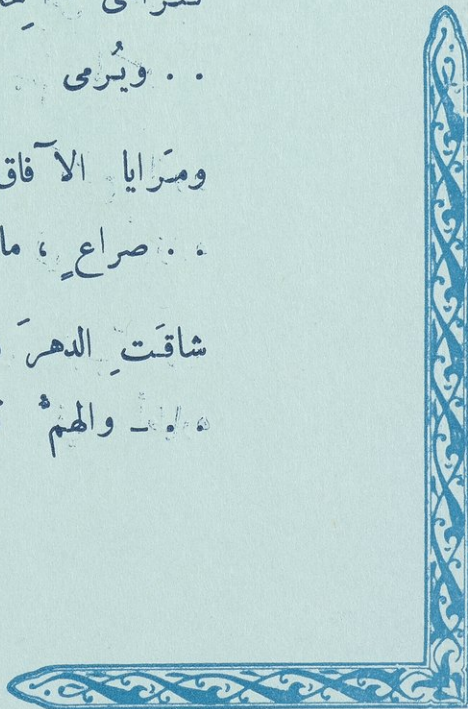 . . ويُرمى
ومَرايا الآفاق
. . صراعٍ ، ما
شاقَتِ الدهرَ
. . ــ والهمْ